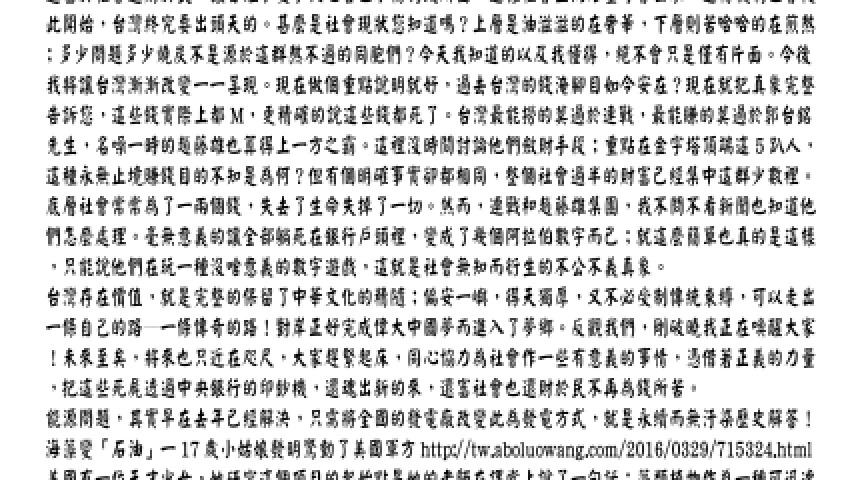 此開始，台灣終究要出頭天的。甚麼是社會現狀您知道嗎？上層是油滋滋的在奢華，下層則苦哈哈的在煎熬
；多少問題多少燒炭不是源於這群熬不過的同胞們？今天我知道的以及我懂得，絕不會只是僅有片面。今後
我將讓台灣漸漸改變一一呈現。現在做個重點說明就好，過去台灣的錢淹腳目如今安在？現在就把真象完整
告訴您，這些錢實際上都 M，更精確的說這些錢都死了。台灣最能撈的莫過於連戰，最能賺的莫過於郭台銘
先生，名噪一時的趙藤雄也算得上一方之霸。這裡沒時間討論他們斂財手段；重點在金字塔頂端這 5 趴人，
這種永無止境賺錢目的不知是為何？但有個明確事實卻都相同，整個社會過半的財富已經集中這群少數裡。
底層社會常常為了一兩個錢，失去了生命失掉了一切。然而，連戰和趙藤雄集團，我不問不看新聞也知道他
們怎麼處理。毫無意義的讓全部躺死在銀行戶頭裡，變成了幾個阿拉伯數字而已；就這麼簡單也真的是這樣
，只能說他們在玩一種沒啥意義的數字遊戲，這就是社會無知而衍生的不公不義真象。
台灣存在價值，就是完整的保留了中華文化的精隨；偏安一嶼，得天獨厚，又不必受制傳統束縛，可以走出
一條自己的路─一條傳奇的路！對岸正好完成偉大中國夢而進入了夢鄉。反觀我們，剛破曉我正在喚醒大家
！未來至矣，將來也只近在咫尺，大家趕緊起床，同心協力為社會作一些有意義的事情，憑借著正義的力量
，把這些死屍透過中央銀行的印鈔機，還魂出新的來，還富社會也還財於民不再為錢所苦。
能源問題，其實早在去年已經解決，只需將全國的發電廠改變此為發電方式，就是永續而無汙染歷史解答！
海藻變「石油」一 17 歲小姑娘發明驚動了美國軍方 http://tw.aboluowang.com/2016/0329/715324.html